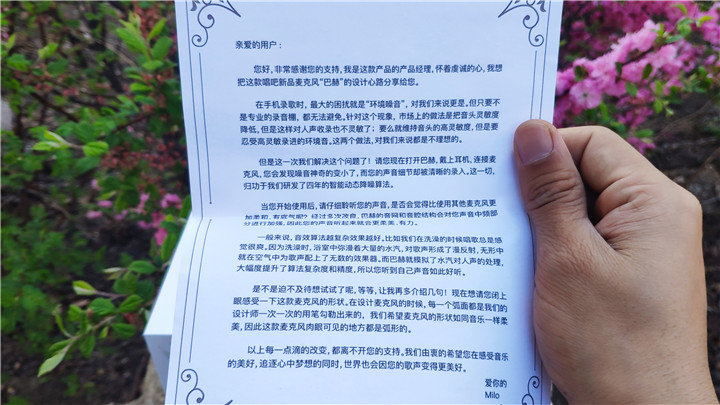 亲爱的用户：
您好，非常感谢您的支持，我是这款产品的产品经理，怀着虔诚的心，我想
把这款唱吧新品麦克风“巴赫”的设计心路分享给您。
在手机录歌时，最大的困扰就是“环境噪音”，对我们来说更是。但只要不
是专业的录音棚，都无法避免。针对这个现象，市场上的做法是把音头灵敏度
降低，但是这样对人声收录也不灵敏了；要么就维持音头的高灵敏度，但是要
忍受高灵敏录进的环境音。这两个做法，对我们来说都是不理想的。
但是这一次我们解决这个问题了！请您现在打开巴赫，戴上耳机，连接麦
克风，您会发现噪音神奇的变小了，而您的声音细节却被清晰的录入。这一切，
归功于我们研发了四年的智能动态降噪算法。
当您开始使用后，请仔细聆听您的声音，是否会觉得比使用其他麦克风更
加柔和、有底气呢？经过多次改良，巴赫的音网和音腔结构会对您声音中频部
分进行加强，因此您的声音听起来就会更柔美、有力。
一般来说，音效算法越复杂效果越好。比如我们在洗澡的时候唱歌总是感
觉很爽。因为洗澡时，浴室中弥漫着大量的水汽，对歌声形成了漫反射，无形中
就在空气中为歌声配上了无数的效果器。而巴赫就模拟了水汽对人声的处理，
大幅度提升了算法复杂度和精度，所以您听到自己声音如此好听。
是不是迫不及待想试试了呢，等等，让我再多介绍几句！现在想请您闭上
眼感受一下这款麦克风的形状。在设计麦克风的时候，每一个弧面都是我们的
设计师一次一次的用笔勾勒出来的，我们希望麦克风的形状如同音乐一样柔
美，因此这款麦克风肉眼可见的地方都是弧形的。
以上每一点滴的改变，都离不开您的支持。我们由衷的希望您在感受音乐
的美好，追逐心中梦想的同时，世界也会因您的歌声变得更美好。
爱你的
Milo